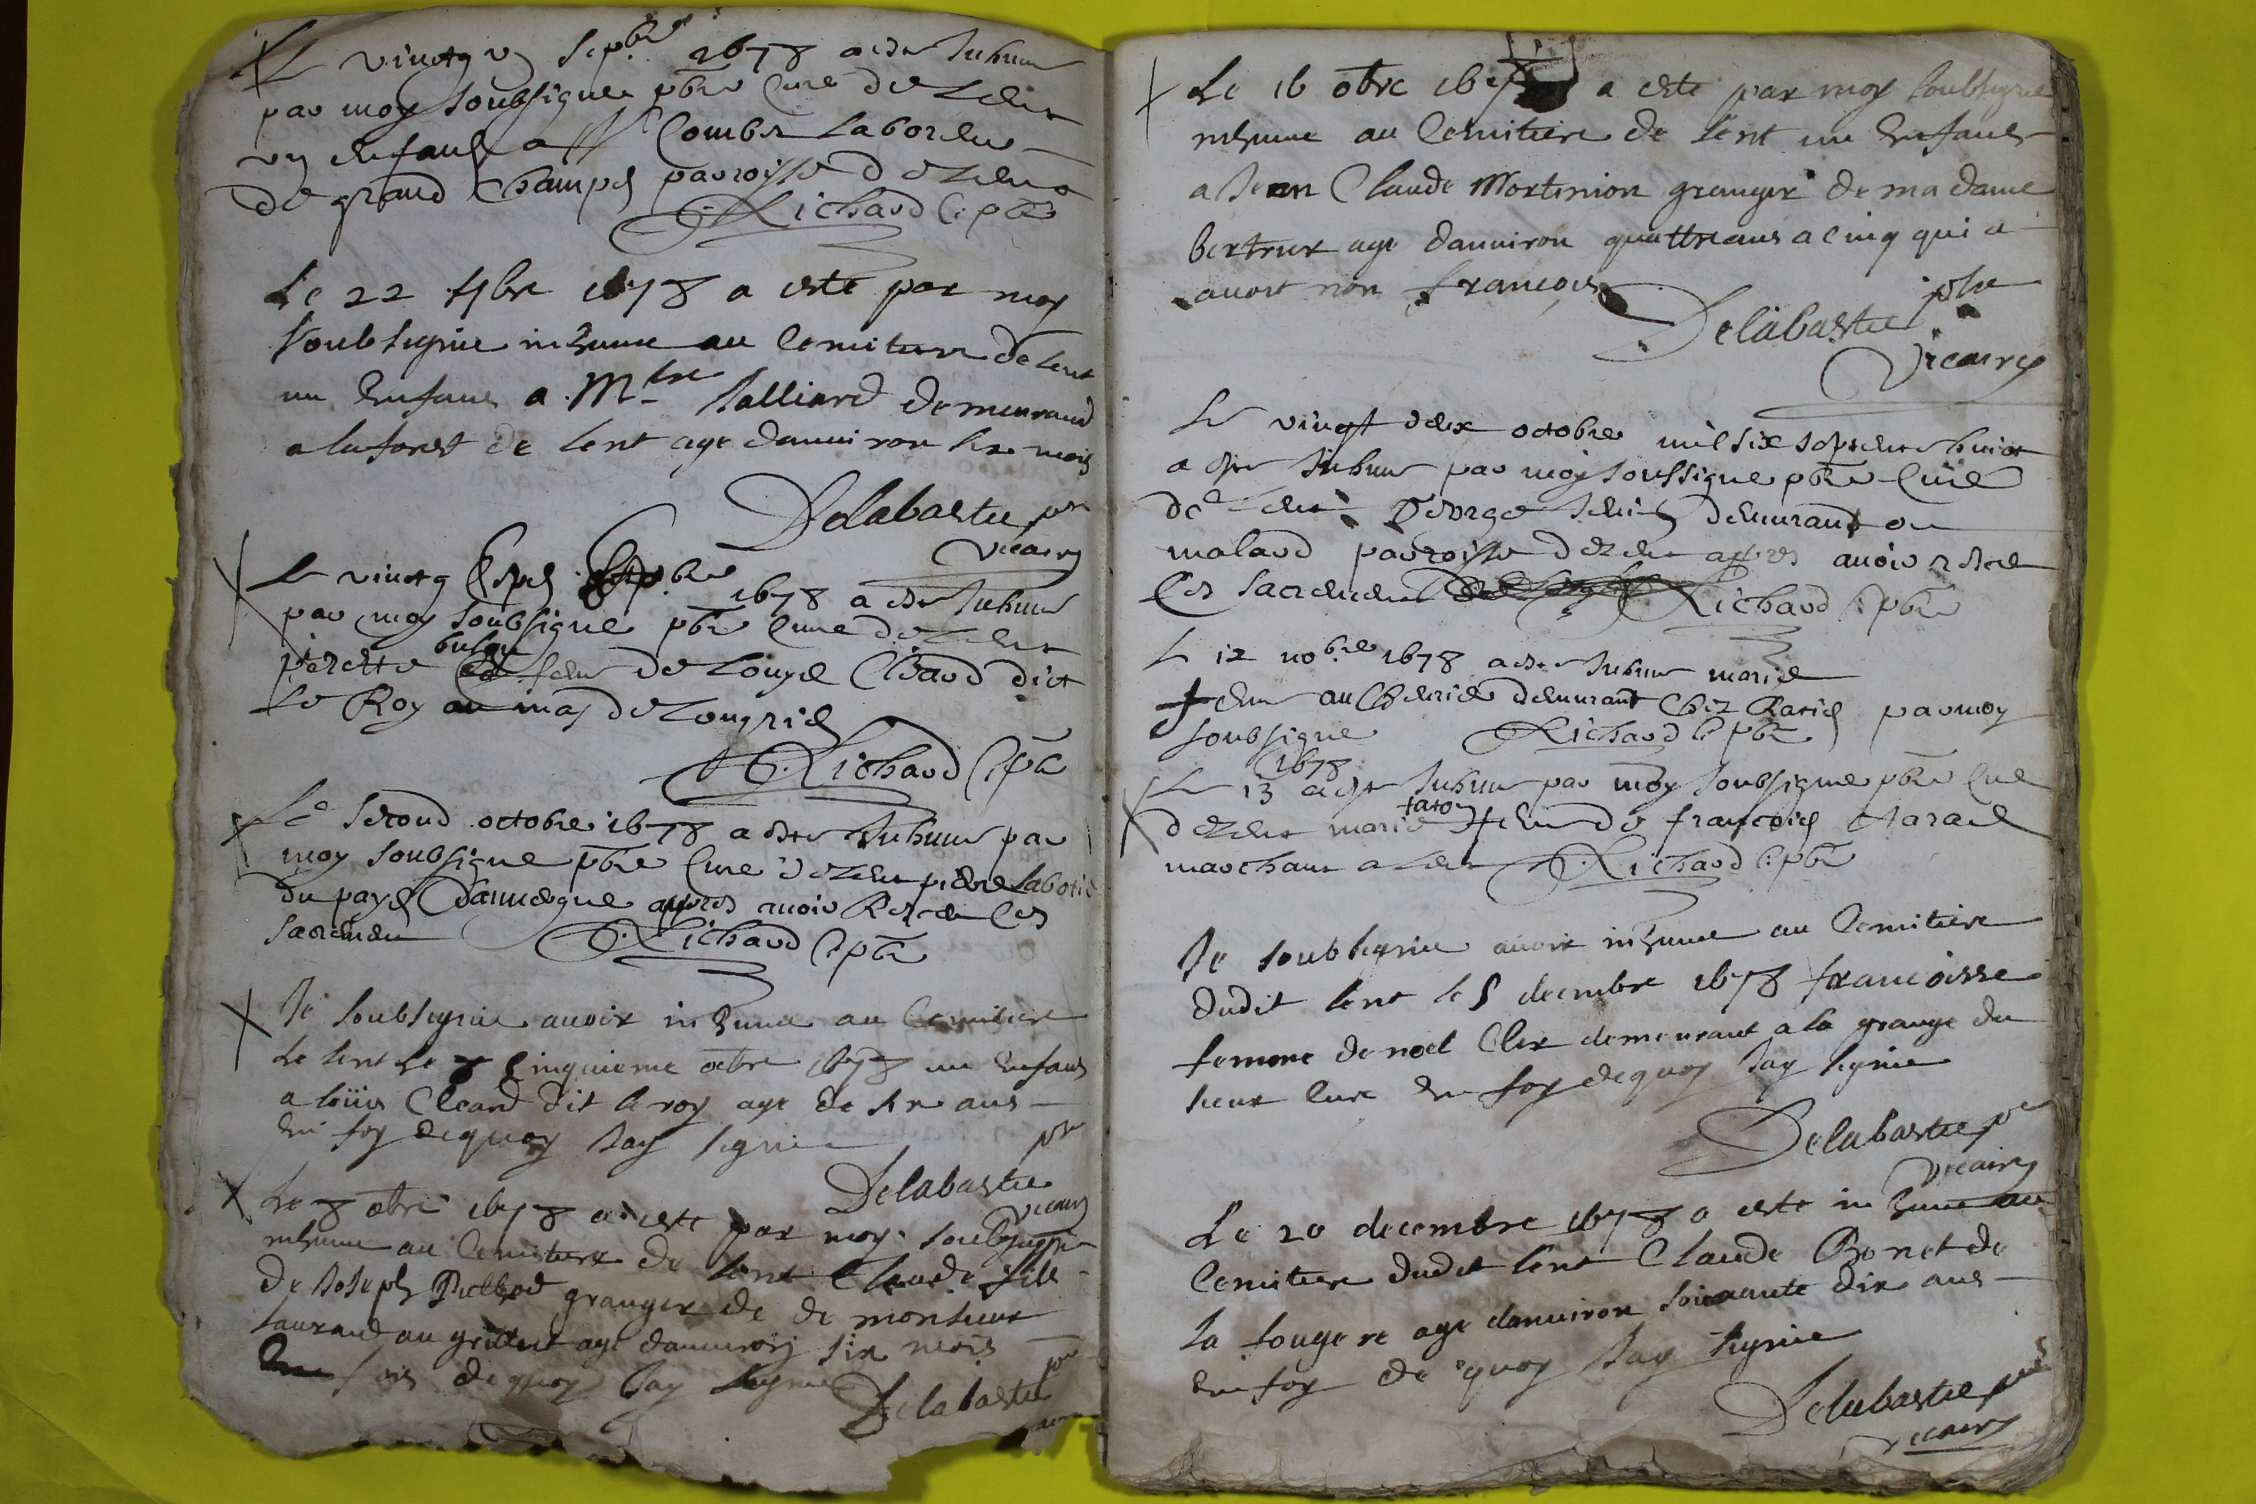 Le vingt un sepbre 1678 a este Inhume
par moy soubsigne pbre Cure de Lent
un enfant a Combe Laboreur
de grand Champs parroisse de Lent
Richard C. pbre
Le 22 7bre 1678 a esté par moy
soubsigné inhumé au Cemitiere de lent
un enfant a Mtre Jalliard demeurand
a la forest de lent age danuiron six mois
Delabastie pbre
vicaire
Le vingt sept sepbre 1678 a este Inhume
par moy soubsigne pbre Cure de Lent
pierette feme de Louys Cleard dict
Le Roy au mas de Longris
Richard C. pbr
Le second octobre 1678 a este Inhume par
moy soubsigne pbre Cure de Lent pierre Laborie
du pays Dauuergne apres auoir Receu les
sacremen Richard C. pbr
Je soubsigné auoir inhumé au Cemitiere
de lent le cinquieme octbre 1678 un enfant
a loüis Cleard dit le roy age de six ans
En foy dequoy Jay signé
pbr
Delabastie
vicaire
Le 8 octbre 1678 a esté par moy soubsigné
inhumé au Cemitiere de lent Claude fille
de Joseph granger de de monsieur
age danuiron six mois
fois dequoy Jay signé
Delabastie pbr
vicaire
Le 16 obre 167 a esté par moy soubsigné
inhumé au Cemitiere de lent un enfant
a Jean Claude Mortinion granger de madame
bertrier age danuiron quattre ans a cinq qui a
auoit nom francois
Delabastie pbre
vicaire
Le vingt deux octobre mil six septente huict
a este Inhume par moy soussigne pbre Cure
de Lent George demurant en
malaud parroisse de Lent apres auoir receu
les sacremens Richard C. pbre
Le 12 nobre 1678 a este Inhume marie
feme au Cheurier demurant Chez Ravier par moy
soubsigne Richard C. pbr
1678
Le 13 a este Inhume par moy soubsigne pbre Cure
de Lent marie faron feme de francois
marchant a Lent Richard C. pbr
Je soubsigné auoir inhumé au Cemitiere
dudit lent le 5 decembre 1678 francoisse
femme de noel Cler demeurant a la grange du
sieur Cure En foy dequoy Jay signé
Delabastie pbr
vicaire
Le 20 decembre 1678 a esté inhumé au
Cemitiere dudit lent Claude Bonet de
la fougere age danuiron soixante dix ans
En foy de quoy Jay signé
Delabastie pbre
vicaire